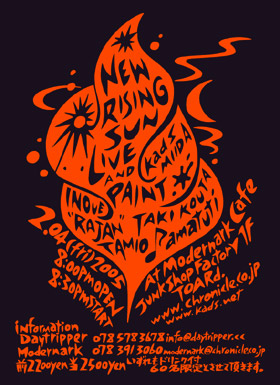 NEW
RISING
SUN
LIVE
AND
PAINT
Kads
MIIDA
INOUE
"RAJAN"
TAKI KOUYA
ZAMIO
Yamafuji
2.04 (fri) 2005
8:00PM OPEN
8:30PM START
At Modernark Cafe
Junk Shop Factory 1F
TOARd.
www.1.chronicle.co.jp
www.kads.net
information
Daytripper 078 578 3678 info@daytripper.cc
Modernark 078 391 3060 modernark@chronicle.co.jp
前2200yen 当2500yen いずれもドリンク付
60名限定とさせて頂きます。